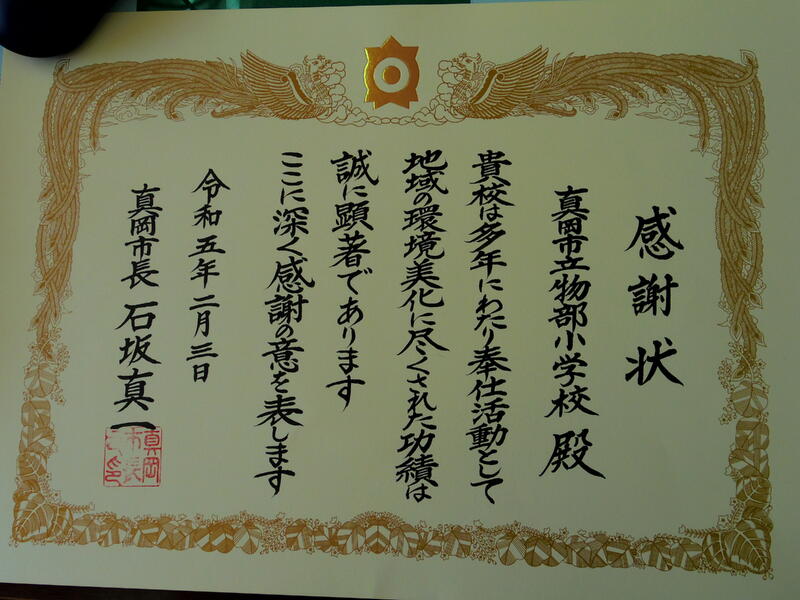 感謝状
真岡市立物部小学校 殿
貴校は多年にわたり奉仕活動として
地域の環境美化に尽くされた功績は
誠に顕著であります
ここに深く感謝の意を表します
令和五年二月三日
真岡市長 石坂真一
真岡
市長
之印